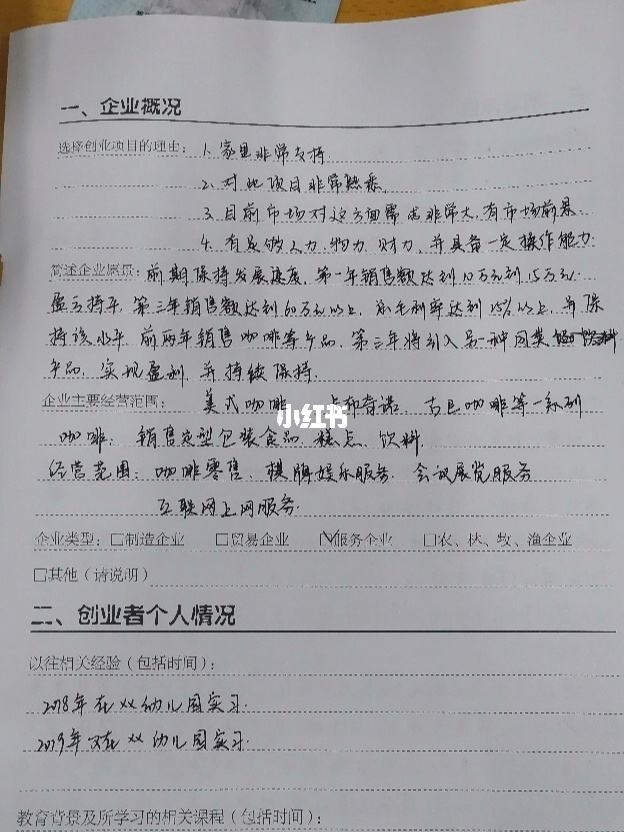 一、企业概况
选择创业项目的理由: 1. 家里非常支持.
2. 对此项目非常熟悉.
3. 目前市场对这方面需求非常大, 有市场前景.
4. 有足够人力. 物力. 财力. 并具备一定操作能力.
简述企业愿景: 前期保持发展速度, 第一年销售额达到10万元到15万元.
盈亏持平, 第三年销售额达到60万元以上, 毛利率达到15%以上, 并保
持该水平 前两年销售咖啡等产品, 第三年将引入另一种同类 饮料
产品, 实现盈利, 并持续保持.
企业主要经营范围: 美式咖啡、卡布奇诺、古巴咖啡等一系列
小红书
咖啡. 销售定型包装食品、糕点、饮料.
经营范围: 咖啡零售、棋牌娱乐服务. 会议展览服务
互联网上网服务.
企业类型: □制造企业 □贸易企业 ☑服务企业 □农、林、牧、渔企业
□其他(请说明)
二、创业者个人情况
以往相关经验(包括时间):
2018年在XX幼儿园实习.
2019年又在XX幼儿园实习.
教育背景及所学习的相关课程(包括时间):